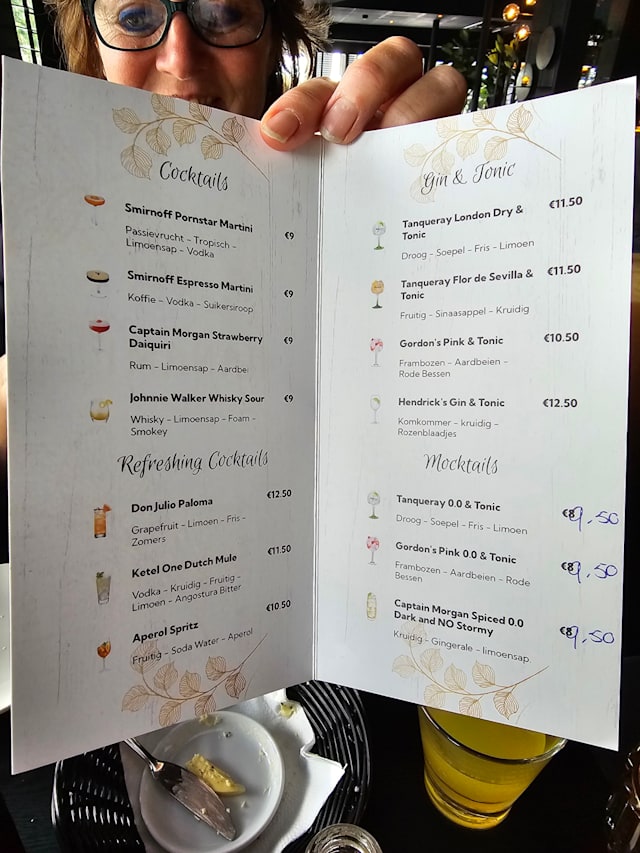 Cocktails
Smirnoff Pornstar Martini €9
Passievrucht - Tropisch -
Limoensap - Vodka
Smirnoff Espresso Martini €9
Koffie - Vodka - Suikersiroop
Captain Morgan Strawberry
Daiquiri €9
Rum - Limoensap - Aardbei
Johnnie Walker Whisky Sour €9
Whisky - Limoensap - Foam -
Smokey
Refreshing Cocktails
Don Julio Paloma €12.50
Grapefruit - Limoen - Fris -
Zomers
Ketel One Dutch Mule €11.50
Vodka - Kruidig - Fruitig -
Limoen - Angostura Bitter
Aperol Spritz €10.50
Fruitig - Soda Water - Aperol
Gin & Tonic
Tanqueray London Dry & €11.50
Tonic
Droog - Soepel - Fris - Limoen
Tanqueray Flor de Sevilla & €11.50
Tonic
Fruitig - Sinaasappel - Kruidig
Gordon's Pink & Tonic €10.50
Frambozen - Aardbeien -
Rode Bessen
Hendrick's Gin & Tonic €12.50
Komkommer - kruidig -
Rozenblaadjes
Mocktails
Tanqueray 0.0 & Tonic €8 9,50
Droog - Soepel - Fris - Limoen
Gordon's Pink 0.0 & Tonic €8 9,50
Frambozen - Aardbeien - Rode
Bessen
Captain Morgan Spiced 0.0
Dark and NO Stormy €8 9,50
Kruidig - Gingerale - limoensap